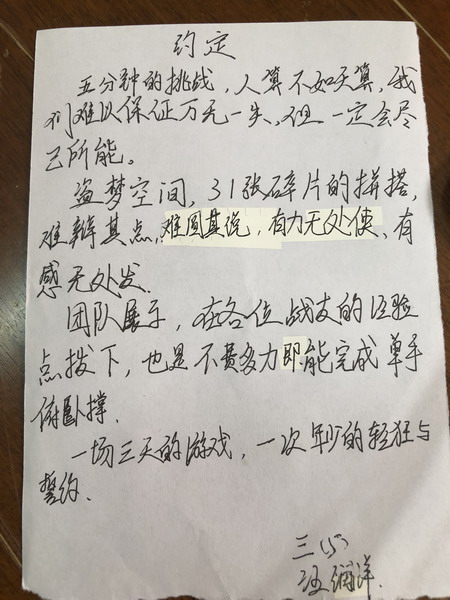 约定
五分钟的挑战，人算不如天算，我
们难以保证万无一失，但一定会尽
己所能。
盗梦空间，31张碎片的拼搭，
难辨其点，难圆其说，有力无处使、有
感无处发.
团队展示，在各位战友的经验
点拨下，也是不费多力即能完成单手
俯卧撑.
一场三天的游戏，一次年少的轻狂与
誓约.
三(5)